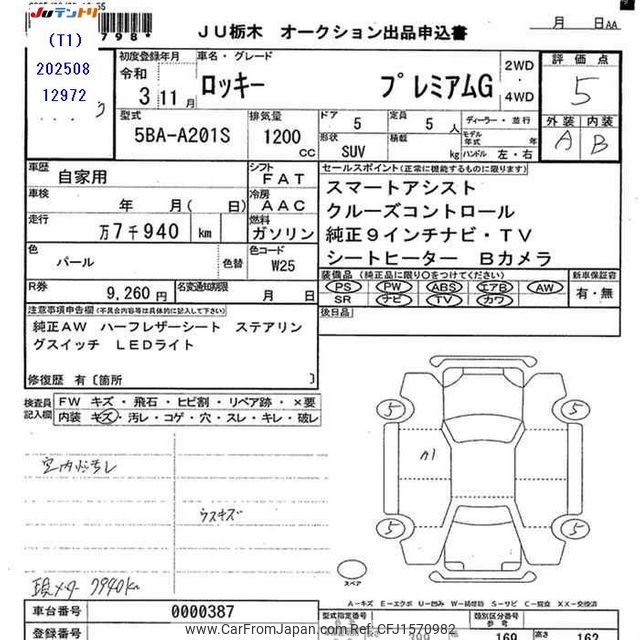 JUテントリ
798*
(T1)
202508
12972
JU栃木 オークション出品申込書
月 日AA
初度登録年月 車名・グレード
令和
3 11月 ロッキー プレミアムG 2WD・4WD
評価点
5
型式 5BA-A201S
排気量 1200 CC
ドア 5
定員 5人
形状 SUV
積載 kg
ディーラー・並行
モデル年式 年
ハンドル 左・右
外装 内装
A B
車歴 自家用
シフト FAT
車検 年 月( 日)
冷房 AAC
走行 万7千940 km
燃料 ガソリン
色 パール 色替
色コード W25
R券 9,260円
名変通知期限 月 日
セールスポイント(正常に機能するものに限ります)
スマートアシスト
クルーズコントロール
純正9インチナビ・TV
シートヒーター Bカメラ
装備品(純正品に限り○をつけてください)
PS PW ABS エアB AW
SR ナビ TV カワ
新車保証書
有・無
後日品
注意事項申告欄(不具合内容等は具体的に記入して下さい)
純正AW ハーフレザーシート ステアリン
グスイッチ LEDライト
修復歴 有〔箇所 〕
検査員記入欄
FW キズ・飛石・ヒビ割・リペア跡・×要
内装 キズ・汚レ・コゲ・穴・スレ・キレ・破レ
室内汚レ
ウスキズ
現メーター 7940km
5 5
A1
5 5
スペア
A-キズ E-エクボ U-凹み W-補修跡 S-サビ C-腐食 XX-交換済
車台番号 0000387
登録番号
型式指定番号
類別区分番号
169 高さ 162
www.CarFromJapan.com Ref CFJ1570982